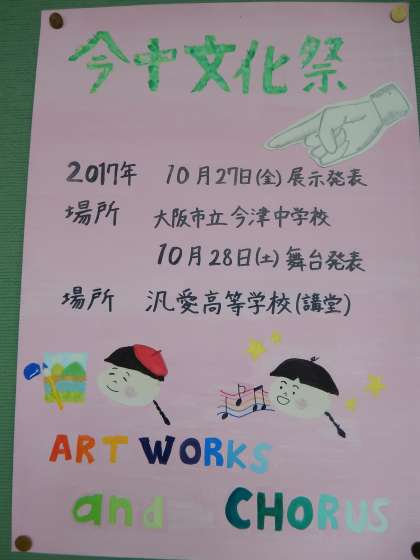 今中文化祭
2017年 10月27日(金)展示発表
場所 大阪市立今津中学校
10月28日(土)舞台発表
場所 汎愛高等学校(講堂)
ART WORKS
and CHORUS